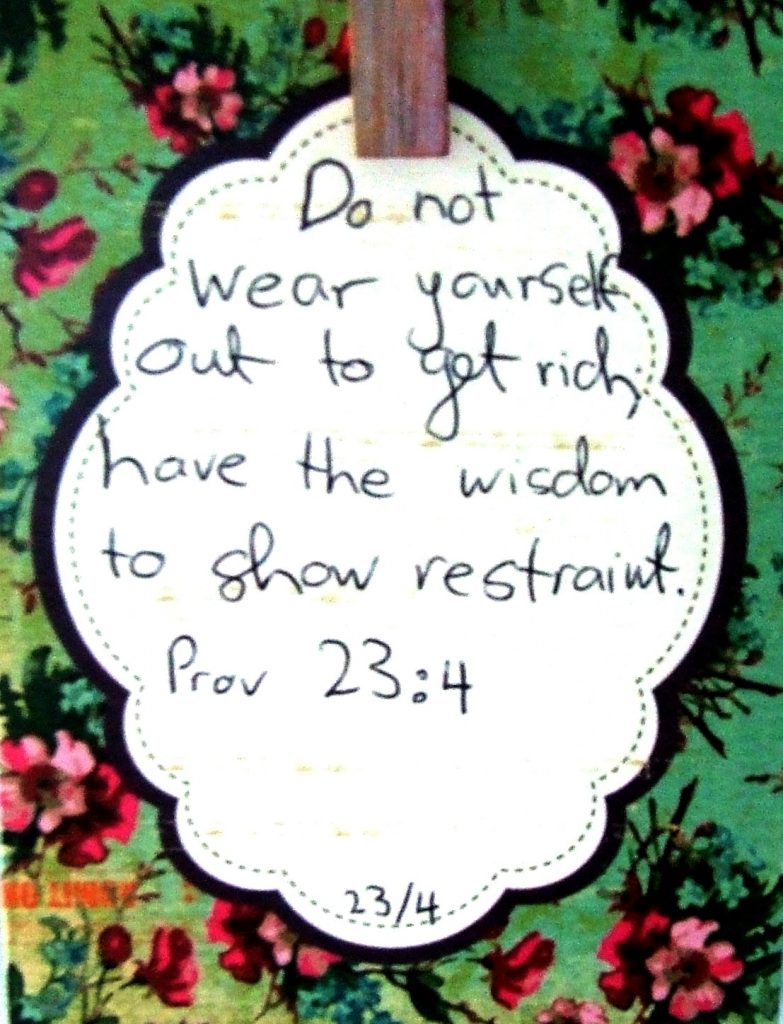 Do not
wear yourself
out to get rich;
have the wisdom
to show restraint.
Prov 23:4
23/4